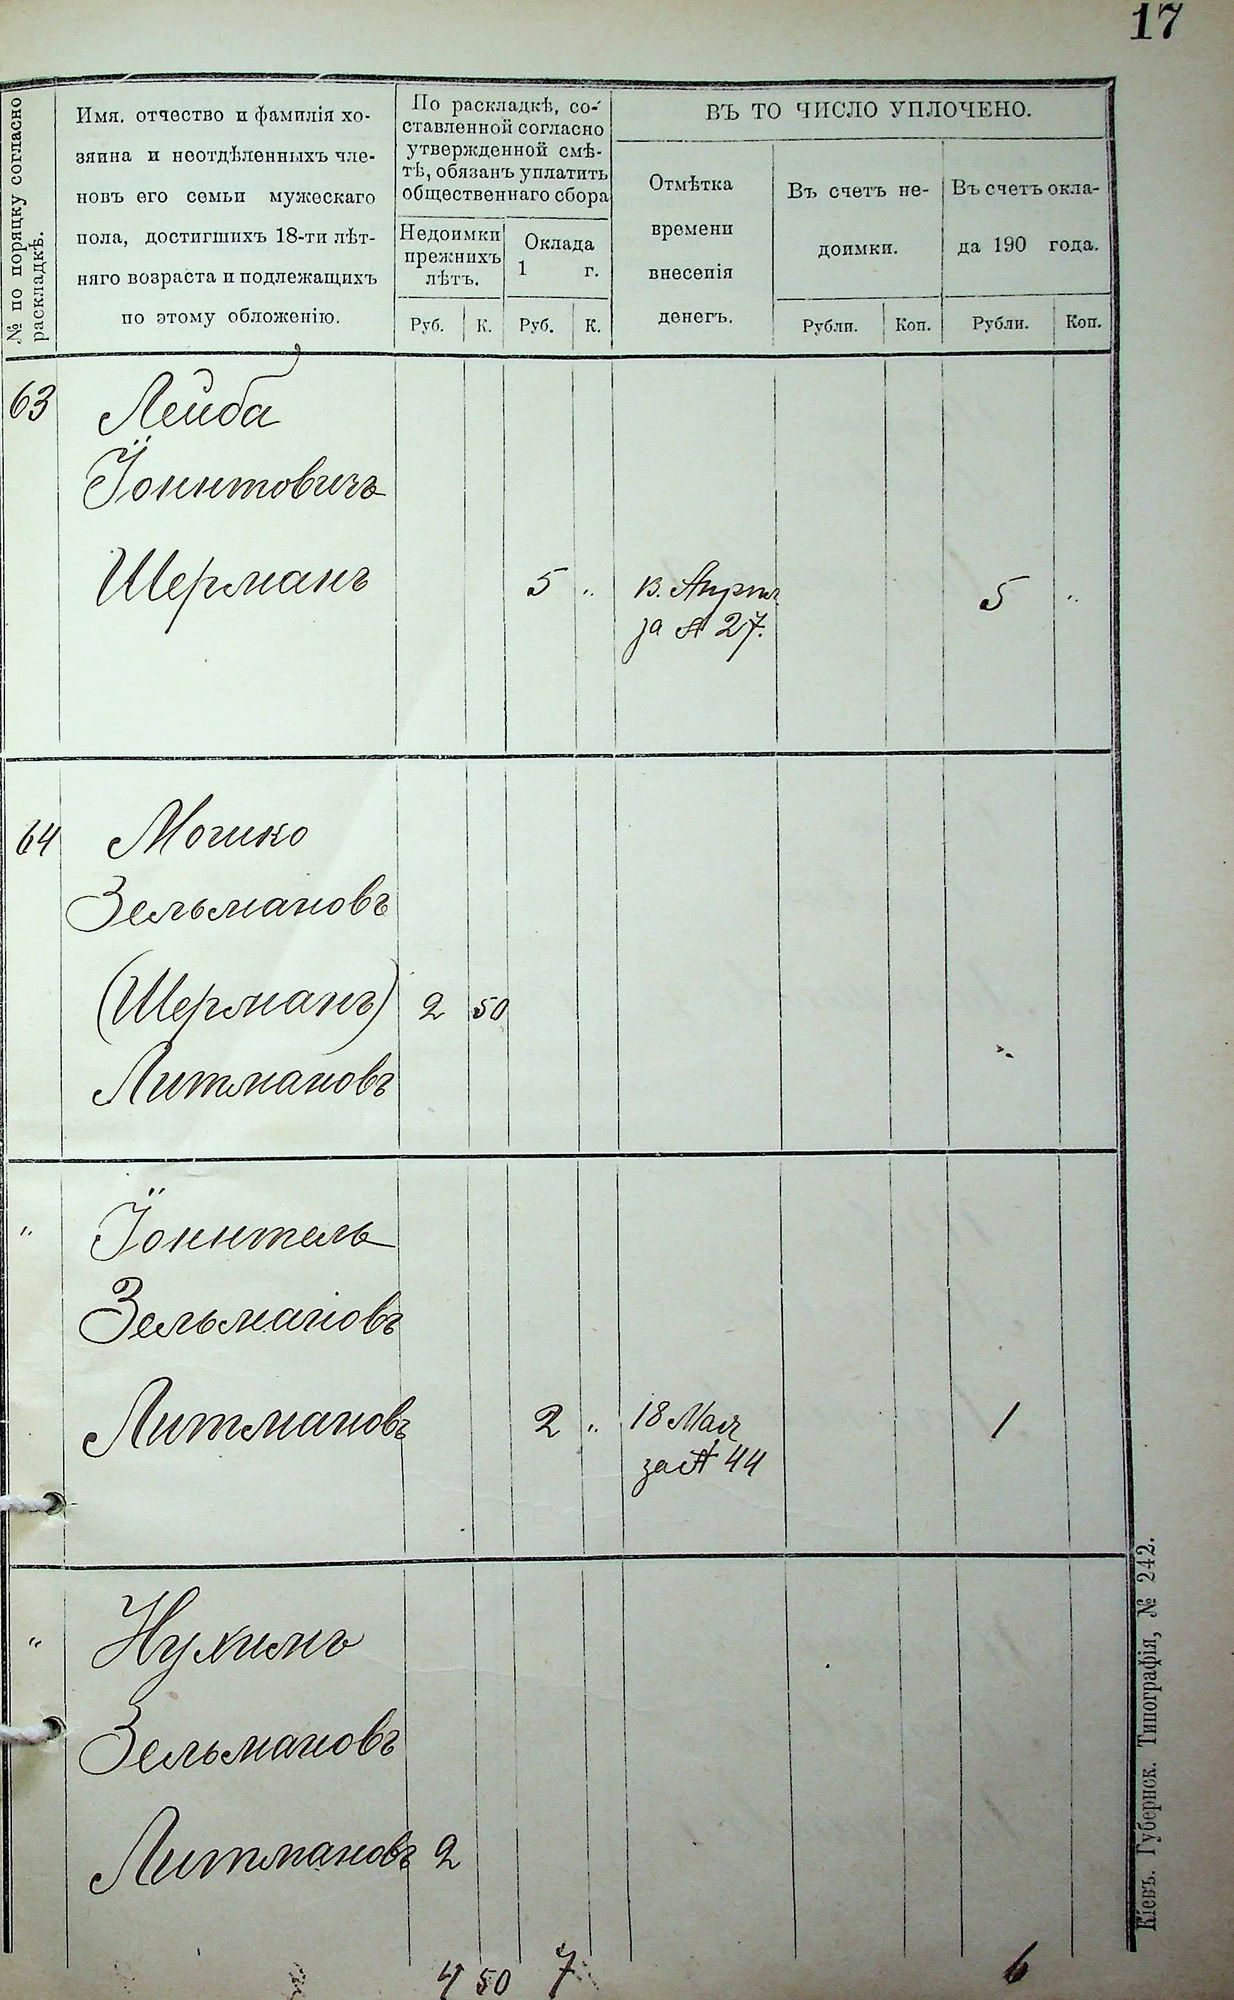 17
№ по порядку согласно
раскладкѣ.
Имя, отчество и фамилія хо-
зяина и неотдѣленныхъ чле-
новъ его семьи мужескаго
пола, достигшихъ 18-ти лѣт-
няго возраста и подлежащихъ
по этому обложенію.
По раскладкѣ, со-
ставленной согласно
утвержденной смѣ-
тѣ, обязанъ уплатить
общественнаго сбора
Недоимки
прежнихъ
лѣтъ.
Оклада
1 г.
Руб. К. Руб. К.
ВЪ ТО ЧИСЛО УПЛОЧЕНО.
Отмѣтка
времени
внесенія
денегъ.
Въ счетъ не-
доимки.
Въ счетъ окла-
да 190 года.
Рубли. Коп. Рубли. Коп.
63 Лейба
Іоинтовичъ
Шерманъ 5 „ 13. Апрѣл 5 „
за № 27.
64 Мошко
Зельмановъ
(Шерманъ) 2 50
Литмановъ
„ Іоинтель
Зельмановъ
Литмановъ 2 „ 18 Мая 1
за № 44
„ Нухимъ
Зельмановъ
Литмановъ 2
4 50 7 6
Кіевъ. Губернск. Типографія, № 242.